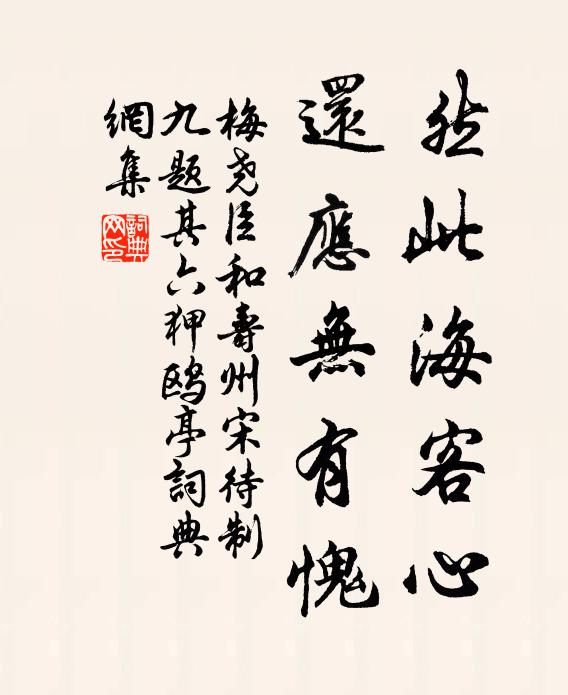 然此海客心
還應無有愧
梅尧臣和壽州宋待制
九题其六狎鸥亭詞典
網集
詞典
网印